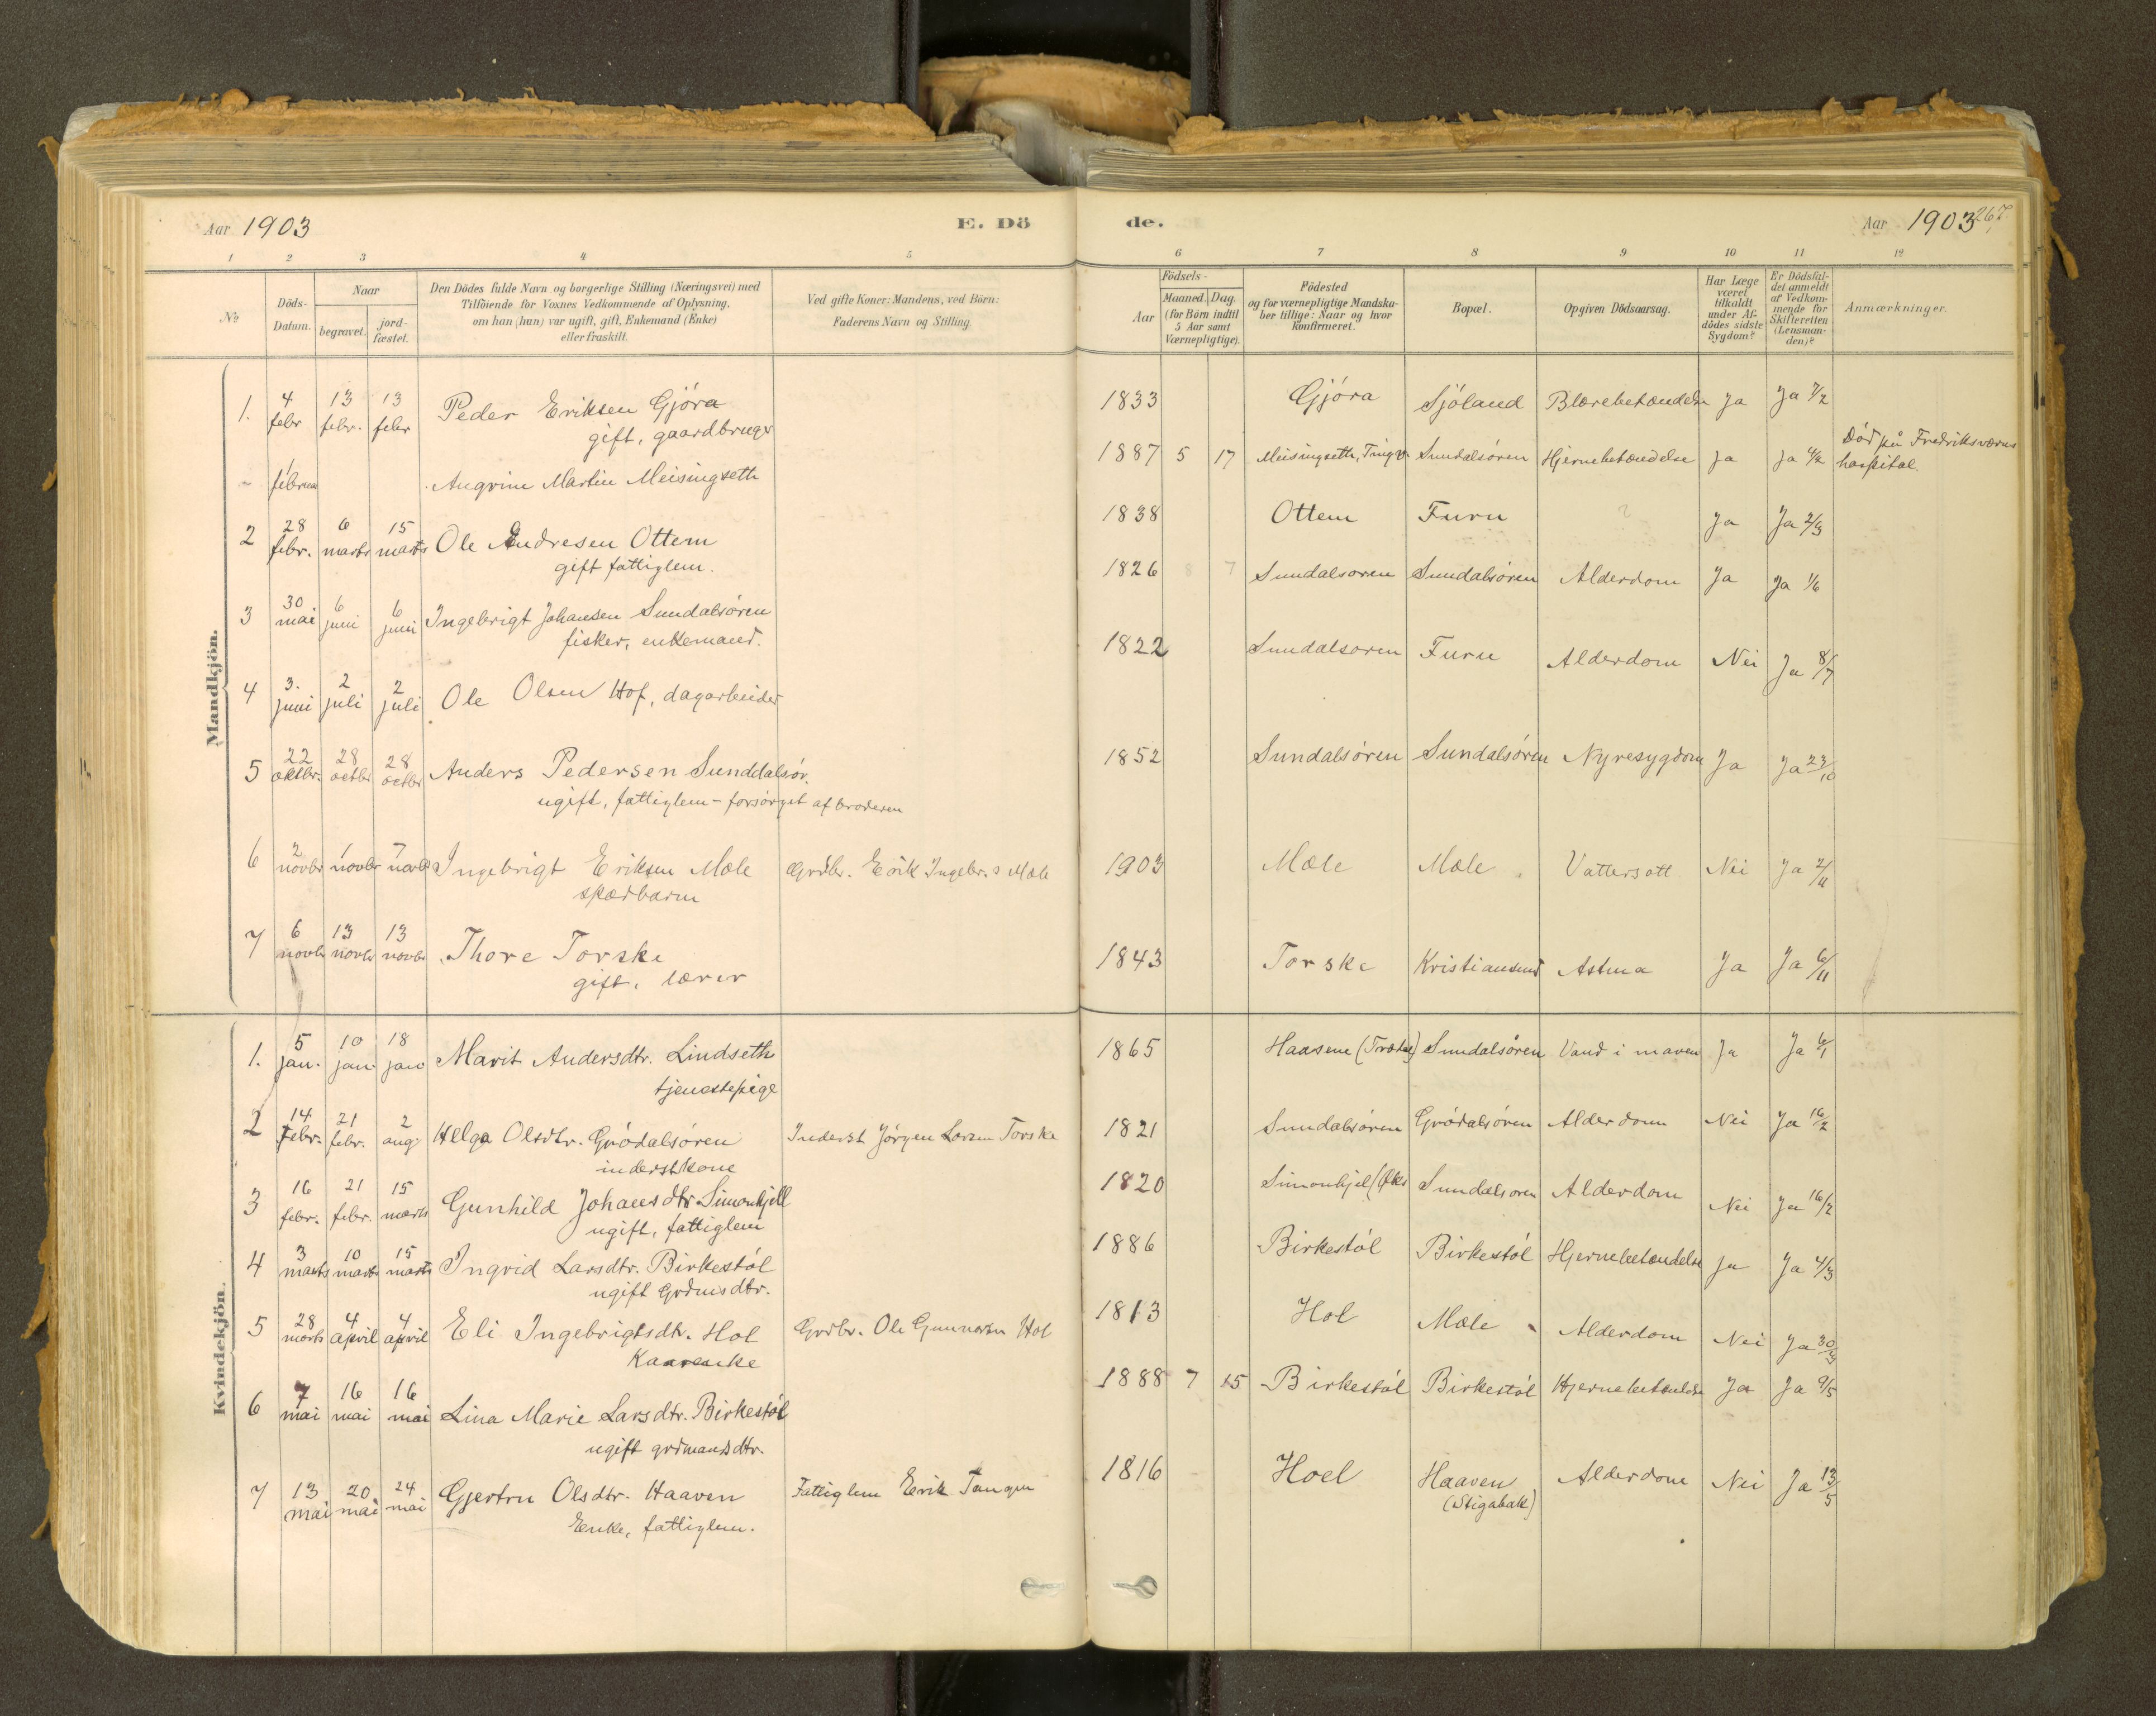 Aar 1903
E. Dö
de.
Aar 1903
267
1 2 3 4 5 6 7 8 9 10 11 12
No
Döds-Datum.
Naar
begravet.
jord-fæstet.
Den Dödes fulde Navn og borgerlige Stilling (Næringsvei) med
Tilföiende for Voxnes Vedkommende af Oplysning,
om han (hun) var ugift, gift, Enkemand (Enke)
eller fraskilt.
Ved gifte Koner: Mandens, ved Börn:
Faderens Navn og Stilling.
Födsels-
Aar
Maaned. Dag.
(for Börn indtil
5 Aar samt
Værnepligtige).
Födested
og for værnepligtige Mandska-
ber tillige: Naar og hvor
Konfirmeret.
Bopæl.
Opgiven Dödsaarsag.
Har Læge
været
tilkaldt
under Af-
dödes sidste
Sygdom?
Er Dödsfal-
det anmeldt
af Vedkom-
mende for
Skifteretten
(Lensman-
den)?
Anmærkninger.
Mandkjön.
1. 4 febr 13 febr. 13 febr Peder Eriksen Gjöra 1833 Gjöra Sjöland Blærebetændelse Ja Ja 7/2
gift, gaardbruger
- 1 februar Angrim Martin Meisingseth 1887 5 17 Meisingseth, Tingv. Sundalsören Hjernebetændelse Ja Ja 4/2 Död på Fredriksværns
hospital.
2 28 febr. 6 marts 15 marts Ole Andresen Ottem 1838 Ottem Furu ? Ja Ja 2/3
gift fattiglem.
3 30 mai 6 juni 6 juni Ingebrigt Johansen Sundalsören 1826 8 7 Sundalsoren Sundalsören Alderdom Ja Ja 1/6
fisker, enkemand.
4 3. juni 2 juli 2 juli Ole Olsen Hof, dagarbeider 1822 Sundalsoren Furu Alderdom Nei Ja 8/7
5 22 oktbr. 28 octbr 28 octbr Anders Pedersen Sunddalsör. 1852 Sundalsören Sundalsören Nyresygdom Ja Ja 23/10
ugift, fattiglem - forsörget af broderen
6 2 novbr 7 novbr 7 novbr Ingebrigt Eriksen Mæle Grdbr. Erik Ingebr. s Mæle 1903 Mæle Mæle Vattersott Nei Ja 2/11
spædbarn
7 6 novbr 13 novbr 13 novbr Thore Torske 1843 Torske Kristiansund Astma Ja Ja 6/11
gift, lærer
Kvindekjön.
1. 5 jan. 10 jan. 18 jan Marit Andersdtr. Lindseth 1865 Haasene Sundalsören Vand i maven Ja Ja 6/1
tjenestepige
2 14 febr. 21 febr. 2 aug. Helga Olsdtr. Grödalsören Inderst Jörgen Larsen Torske 1821 Sundalsören Grödalsören Alderdom Nei Ja 16/2
inderstkone
3 16 febr. 21 febr. 15 marts Gunhild Johansdtr. Simonkjell 1820 Simonkjel Sundalsoren Alderdom Nei Ja 16/2
ugift, fattiglem
4 3 marts 10 marts 15 marts Ingrid Larsdtr. Birkestöl 1886 Birkestöl Birkestöl Hjernebetændelse Ja Ja 4/3
ugift Grdmsdtr.
5 28 marts 4 april 4 april Eli Ingebrigtsdtr. Hol Grdbr. Ole Gunnarsen Hol 1813 Hol Mæle Alderdom Nei Ja 30/3
Kaarenke
6 7 mai 16 mai 16 mai Lina Marie Larsdtr. Birkestöl 1888 7 15 Birkestöl Birkestöl Hjernebetændelse Ja Ja 9/5
ugift grdmandsdtr.
7 13 mai 20 mai 24 mai Gjertru Olsdtr. Haaven Fattiglem Erik Tangen 1816 Hoel Haaven Alderdom Nei Ja 13/5
(Stigabak)
Enke, fattiglem.